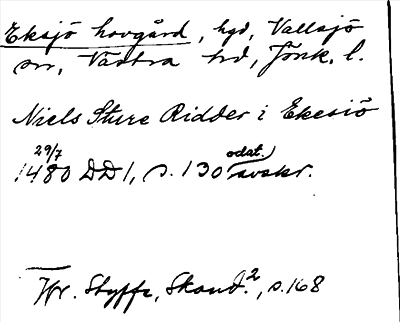 Eksjö hovgård, hgd, Vallsjö
sn, Västra hd, Jönk. l.
Niels Sture Ridder i Ekesiö
29/7
1480 DD1, s. 130 odat. avskr.
Jfr. Styffe, Skand.2, s. 168